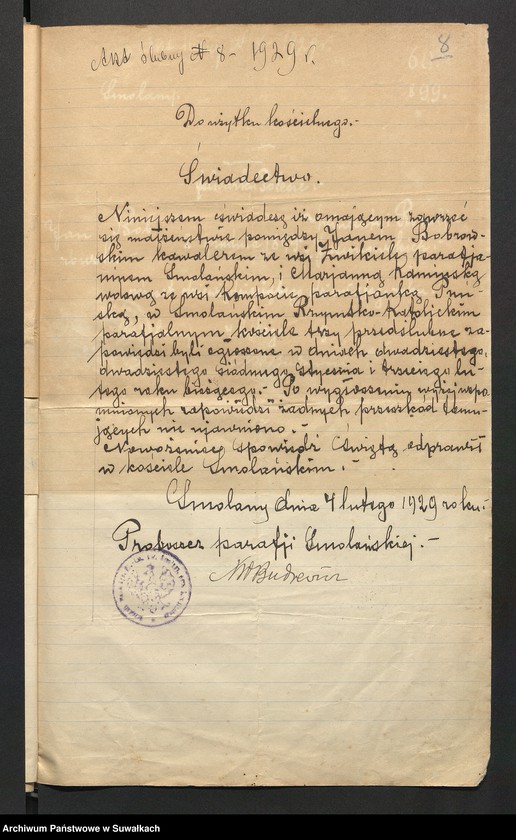 8
Akt ślubny № 8 - 1929 r.
Do użytku kościelnego.-
Świadectwo.
Niniejszem świadczę iż o mającym zawrzeć
się małżeństwie pomiędzy Janem Bobrow-
skim kawalerem ze wsi parafja-
ninem Smolańskim, i Marjanną
wdową ze wsi Kompocie parafjanką Puń-
ską, w Smolańskim Rzymsko-Katolickim
parafjalnym kościele trzy przedślubne za-
powiedzi byli ogłoszone w dniach dwudziestego,
dwudziestego siódmego stycznia i trzeciego lu-
tego roku bieżącego.- Po wygłoszeniu wyżej wspo-
mnionych zapowiedzi żadnych przeszkód tamu-
jących nie ujawniono.-
Nowożeniec spowiedź Świętą odprawił
w kościele Smolańskim.-
Smolany dnia 4 lutego 1929 roku.-
Proboszcz parafji Smolańskiej.-
Archiwum Państwowe w Suwałkach